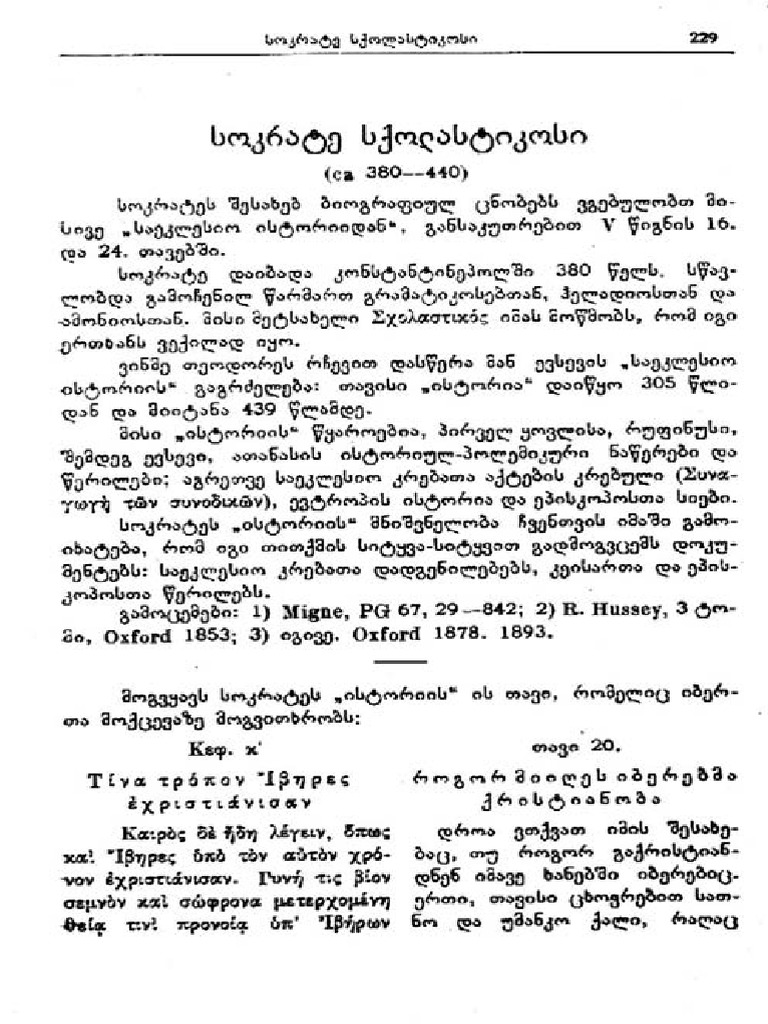 სოკრატე სქოლასტიკოსი 229
სოკრატე სქოლასტიკოსი
(ca 380—440)
სოკრატეს შესახებ ბიოგრაფიულ ცნობებს ვგებულობთ მი-
სივე „საეკლესიო ისტორიიდან“, განსაკუთრებით V წიგნის 16.
და 24. თავებში.
სოკრატე დაიბადა კონსტანტინეპოლში 380 წელს. სწავ-
ლობდა გამოჩენილ წარმართ გრამატიკოსებთან, ჰელადიოსთან და
ამონიოსთან. მისი მეტსახელი Σχολαστικός იმას მოწმობს, რომ იგი
ერთხანს ვექილად იყო.
ვინმე თეოდორეს რჩევით დასწერა მან ევსევის „საეკლესიო
ისტორიის“ გაგრძელება: თავისი „ისტორია“ დაიწყო 305 წლი-
დან და მიიტანა 439 წლამდე.
მისი „ისტორიის“ წყაროებია, პირველ ყოვლისა, რუფინუსი,
შემდეგ ევსევი, ათანასის ისტორიულ-პოლემიკური ნაწერები და
წერილები; აგრეთვე საეკლესიო კრებათა აქტების კრებული (Συνα-
γωγὴ τῶν συνοδικῶν), ევტროპის ისტორია და ეპისკოპოსთა სიები.
სოკრატეს „ისტორიის“ მნიშვნელობა ჩვენთვის იმაში გამო-
იხატება, რომ იგი თითქმის სიტყვა-სიტყვით გადმოგვცემს დოკუ-
მენტებს: საეკლესიო კრებათა დადგენილებებს, კეისართა და ეპის-
კოპოსთა წერილებს.
გამოცემები: 1) Migne, PG 67, 29—842; 2) R. Hussey, 3 ტო-
მი, Oxford 1853; 3) იგივე, Oxford 1878. 1893.
მოგვყავს სოკრატეს „ისტორიის“ ის თავი, რომელიც იბერ-
თა მოქცევაზე მოგვითხრობს:
Κεφ. κʹ
Τίνα τρόπον Ἴβηρες
ἐχριστιάνισαν
Καιρὸς δὲ ἤδη λέγειν, ὅπως
καὶ Ἴβηρες ὑπὸ τὸν αὐτὸν χρό-
νον ἐχριστιάνισαν. Γυνή τις βίον
σεμνὸν καὶ σώφρονα μετερχομένη
θείᾳ τινὶ προνοίᾳ ὑπ’ Ἰβήρων
თავი 20.
როგორ მიიღეს იბერებმა
ქრისტიანობა
დროა ვთქვათ იმის შესახე-
ბაც, თუ როგორ გაქრისტიან-
დნენ იმავე ხანებში იბერებიც.
ერთი, თავისი ცხოვრებით სათ-
ნო და უმანკო ქალი, რაღაც